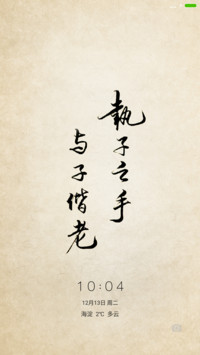 執子之手
与子偕老
10:04
12月13日 周二
海淀 2℃ 多云